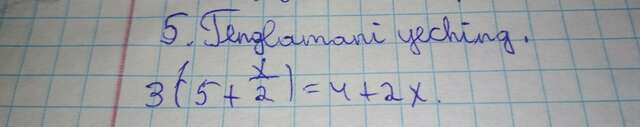 5. Tenglamani yeching.
3(5+x/2)=4+2x.